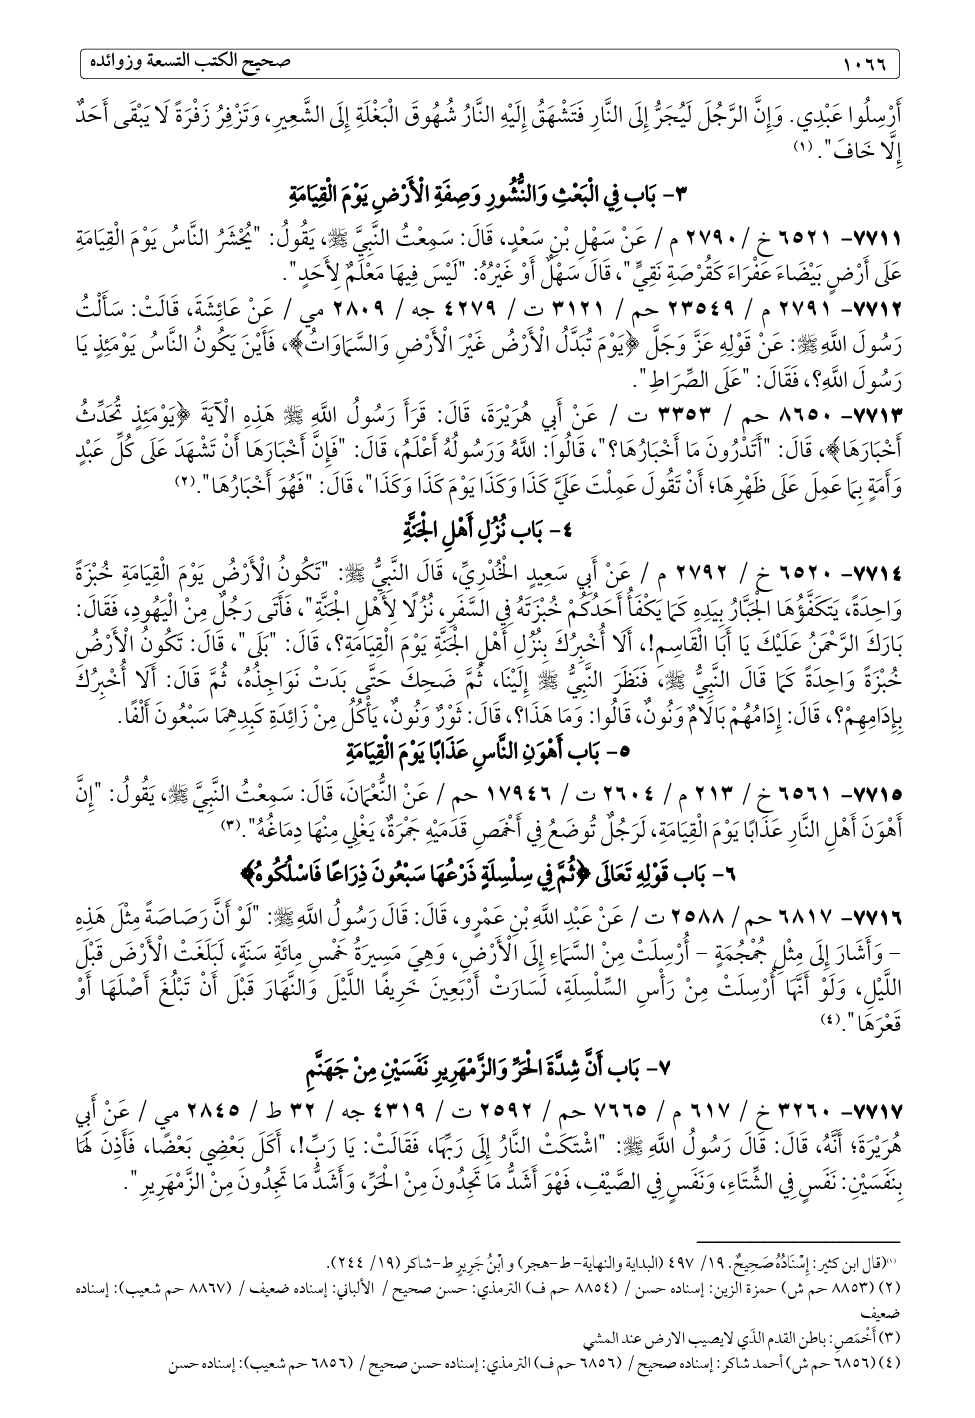 ١٠٦٦ صحيح الكتب التسعة وزوائده
أَرْسِلُوا عَبْدِي. وَإِنَّ الرَّجُلَ لَيُجَرُّ إِلَى النَّارِ فَتَشْهَقُ إِلَيْهِ النَّارُ شُهُوقَ الْبَغْلَةِ إِلَى الشَّعِيرِ، وَتَزْفِرُ زَفْرَةً لَا يَبْقَى أَحَدٌ
إِلَّا خَافَ". (١)
٣- بَاب فِي الْبَعْثِ وَالنُّشُورِ وَصِفَةِ الْأَرْضِ يَوْمَ الْقِيَامَةِ
٧٧١١- ٦٥٢١ خ / ٢٧٩٠ م / عَنْ سَهْلِ بْنِ سَعْدٍ، قَالَ: سَمِعْتُ النَّبِيَّ ﷺ، يَقُولُ: "يُحْشَرُ النَّاسُ يَوْمَ الْقِيَامَةِ
عَلَى أَرْضٍ بَيْضَاءَ عَفْرَاءَ كَقُرْصَةِ نَقِيٍّ"، قَالَ سَهْلٌ أَوْ غَيْرُهُ: "لَيْسَ فِيهَا مَعْلَمٌ لِأَحَدٍ".
٧٧١٢- ٢٧٩١ م / ٢٣٥٤٩ حم / ٣١٢١ ت / ٤٢٧٩ جه / ٢٨٠٩ مي / عَنْ عَائِشَةَ، قَالَتْ: سَأَلْتُ
رَسُولَ اللهِ ﷺ: عَنْ قَوْلِهِ عَزَّ وَجَلَّ ﴿يَوْمَ تُبَدَّلُ الْأَرْضُ غَيْرَ الْأَرْضِ وَالسَّمَاوَاتُ﴾، فَأَيْنَ يَكُونُ النَّاسُ يَوْمَئِذٍ يَا
رَسُولَ اللهِ؟، فَقَالَ: "عَلَى الصِّرَاطِ".
٧٧١٣- ٨٦٥٠ حم / ٣٣٥٣ ت / عَنْ أَبِي هُرَيْرَةَ، قَالَ: قَرَأَ رَسُولُ اللهِ ﷺ هَذِهِ الْآيَةَ ﴿يَوْمَئِذٍ تُحَدِّثُ
أَخْبَارَهَا﴾، قَالَ: "أَتَدْرُونَ مَا أَخْبَارُهَا؟"، قَالُوا: اللهُ وَرَسُولُهُ أَعْلَمُ، قَالَ: "فَإِنَّ أَخْبَارَهَا أَنْ تَشْهَدَ عَلَى كُلِّ عَبْدٍ
وَأَمَةٍ بِمَا عَمِلَ عَلَى ظَهْرِهَا؛ أَنْ تَقُولَ عَمِلْتَ عَلَيَّ كَذَا وَكَذَا يَوْمَ كَذَا وَكَذَا"، قَالَ: "فَهُوَ أَخْبَارُهَا".(٢)
٤- بَاب نُزُلِ أَهْلِ الْجَنَّةِ
٧٧١٤- ٦٥٢٠ خ / ٢٧٩٢ م / عَنْ أَبِي سَعِيدٍ الْخُدْرِيِّ، قَالَ النَّبِيُّ ﷺ: "تَكُونُ الْأَرْضُ يَوْمَ الْقِيَامَةِ خُبْزَةً
وَاحِدَةً، يَتَكَفَّؤُهَا الْجَبَّارُ بِيَدِهِ كَمَا يَكْفَأُ أَحَدُكُمْ خُبْزَتَهُ فِي السَّفَرِ، نُزُلًا لِأَهْلِ الْجَنَّةِ"، فَأَتَى رَجُلٌ مِنْ الْيَهُودِ، فَقَالَ:
بَارَكَ الرَّحْمَنُ عَلَيْكَ يَا أَبَا الْقَاسِمِ!، أَلَا أُخْبِرُكَ بِنُزُلِ أَهْلِ الْجَنَّةِ يَوْمَ الْقِيَامَةِ؟، قَالَ: "بَلَى"، قَالَ: تَكُونُ الْأَرْضُ
خُبْزَةً وَاحِدَةً كَمَا قَالَ النَّبِيُّ ﷺ، فَنَظَرَ النَّبِيُّ ﷺ إِلَيْنَا، ثُمَّ ضَحِكَ حَتَّى بَدَتْ نَوَاجِذُهُ، ثُمَّ قَالَ: أَلَا أُخْبِرُكَ
بِإِدَامِهِمْ؟، قَالَ: إِدَامُهُمْ بَالَامٌ وَنُونٌ، قَالُوا: وَمَا هَذَا؟، قَالَ: ثَوْرٌ وَنُونٌ، يَأْكُلُ مِنْ زَائِدَةِ كَبِدِهِمَا سَبْعُونَ أَلْفًا.
٥- بَاب أَهْوَنِ النَّاسِ عَذَابًا يَوْمَ الْقِيَامَةِ
٧٧١٥- ٦٥٦١ خ / ٢١٣ م / ٢٦٠٤ ت / ١٧٩٤٦ حم / عَنْ النُّعْمَانَ، قَالَ: سَمِعْتُ النَّبِيَّ ﷺ، يَقُولُ: "إِنَّ
أَهْوَنَ أَهْلِ النَّارِ عَذَابًا يَوْمَ الْقِيَامَةِ، لَرَجُلٌ تُوضَعُ فِي أَخْمَصِ قَدَمَيْهِ جَمْرَةٌ، يَغْلِي مِنْهَا دِمَاغُهُ".(٣)
٦- بَاب قَوْلِهِ تَعَالَى ﴿ثُمَّ فِي سِلْسِلَةٍ ذَرْعُهَا سَبْعُونَ ذِرَاعًا فَاسْلُكُوهُ﴾
٧٧١٦- ٦٨١٧ حم / ٢٥٨٨ ت / عَنْ عَبْدِ اللهِ بْنِ عَمْرٍو، قَالَ: قَالَ رَسُولُ اللهِ ﷺ: "لَوْ أَنَّ رَصَاصَةً مِثْلَ هَذِهِ
– وَأَشَارَ إِلَى مِثْلِ جُمْجُمَةٍ – أُرْسِلَتْ مِنْ السَّمَاءِ إِلَى الْأَرْضِ، وَهِيَ مَسِيرَةُ خَمْسِ مِائَةِ سَنَةٍ، لَبَلَغَتْ الْأَرْضَ قَبْلَ
اللَّيْلِ، وَلَوْ أَنَّهَا أُرْسِلَتْ مِنْ رَأْسِ السِّلْسِلَةِ، لَسَارَتْ أَرْبَعِينَ خَرِيفًا اللَّيْلَ وَالنَّهَارَ قَبْلَ أَنْ تَبْلُغَ أَصْلَهَا أَوْ
قَعْرَهَا".(٤)
٧- بَاب أَنَّ شِدَّةَ الْحَرِّ وَالزَّمْهَرِيرِ نَفَسَيْنِ مِنْ جَهَنَّمِ
٧٧١٧- ٣٢٦٠ خ / ٦١٧ م / ٧٦٦٥ حم / ٢٥٩٢ ت / ٤٣١٩ جه / ٣٢ ط / ٢٨٤٥ مي / عَنْ أَبِي
هُرَيْرَةَ؛ أَنَّهُ، قَالَ: قَالَ رَسُولُ اللهِ ﷺ: "اشْتَكَتْ النَّارُ إِلَى رَبِّهَا، فَقَالَتْ: يَا رَبِّ!، أَكَلَ بَعْضِي بَعْضًا، فَأَذِنَ لَهَا
بِنَفَسَيْنِ: نَفَسٍ فِي الشِّتَاءِ، وَنَفَسٍ فِي الصَّيْفِ، فَهُوَ أَشَدُّ مَا تَجِدُونَ مِنْ الْحَرِّ، وَأَشَدُّ مَا تَجِدُونَ مِنْ الزَّمْهَرِيرِ".
(١)(قال ابن كثير: إِسْنَادُهُ صَحِيحٌ. ١٩/ ٤٩٧ (البداية والنهاية- ط-هجر) و ابْنُ جَرِيرٍ ط-شاكر (١٩/ ٢٤٤).
(٢) (٨٨٥٣ حم ش) حمزة الزين: إسناده حسن / (٨٨٥٤ حم ف) الترمذي: حسن صحيح / الألباني: إسناده ضعيف / (٨٨٦٧ حم شعيب): إسناده
ضعيف
(٣) أَخْمَصِ: باطن القدم الذي لايصيب الارض عند المشي
(٤) (٦٨٥٦ حم ش) أحمد شاكر: إسناده صحيح / (٦٨٥٦ حم ف) الترمذي: إسناده حسن صحيح / (٦٨٥٦ حم شعيب): إسناده حسن